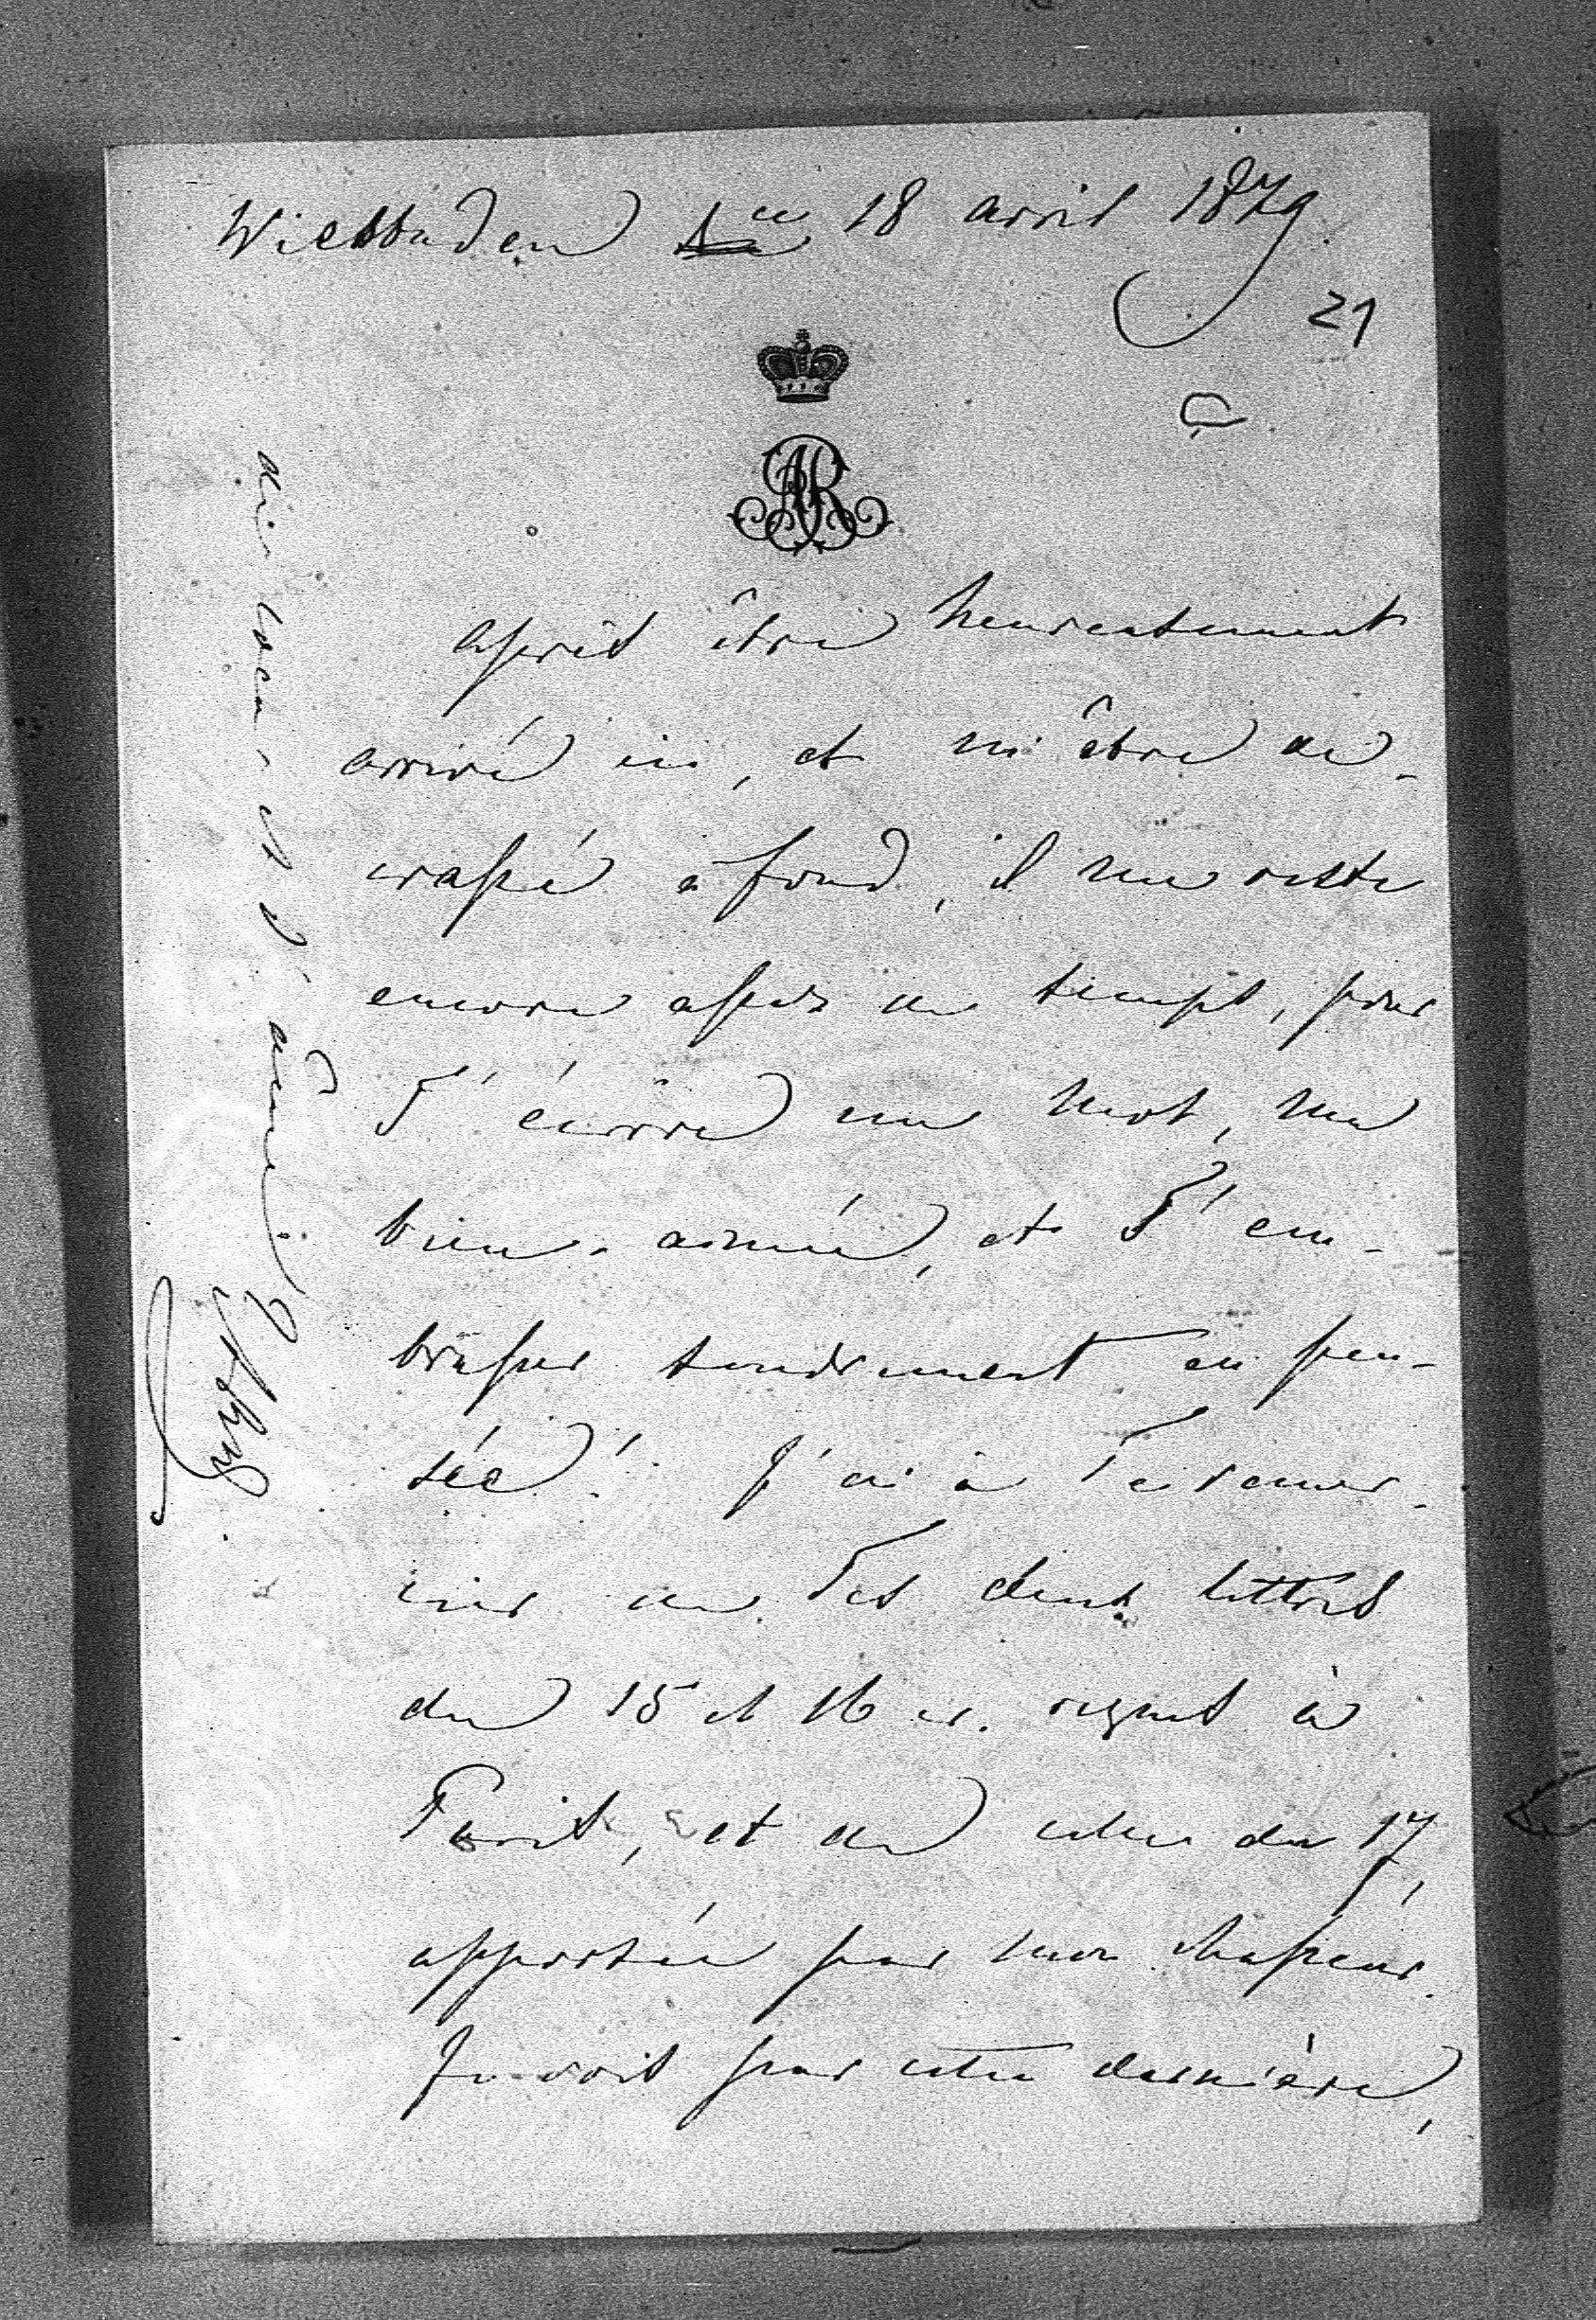 Wiesbaden ce 18 avril 1879.
21
AR
après être heureusement
arrivé ici, et m'être dé-
crassé à fond, il me reste
encore assez de temps, pour
T'écrire un mot, ma
bien-aimée, et T'em-
brasser tendrement en pen-
sée! J'ai à Te remer-
cier de Tes deux lettres
du 15 et 16 cr. reçues à
Paris, et de celle du 17,
apportée par mon chasseur.
Je vois par cette dernière,
de coeur et d'âme